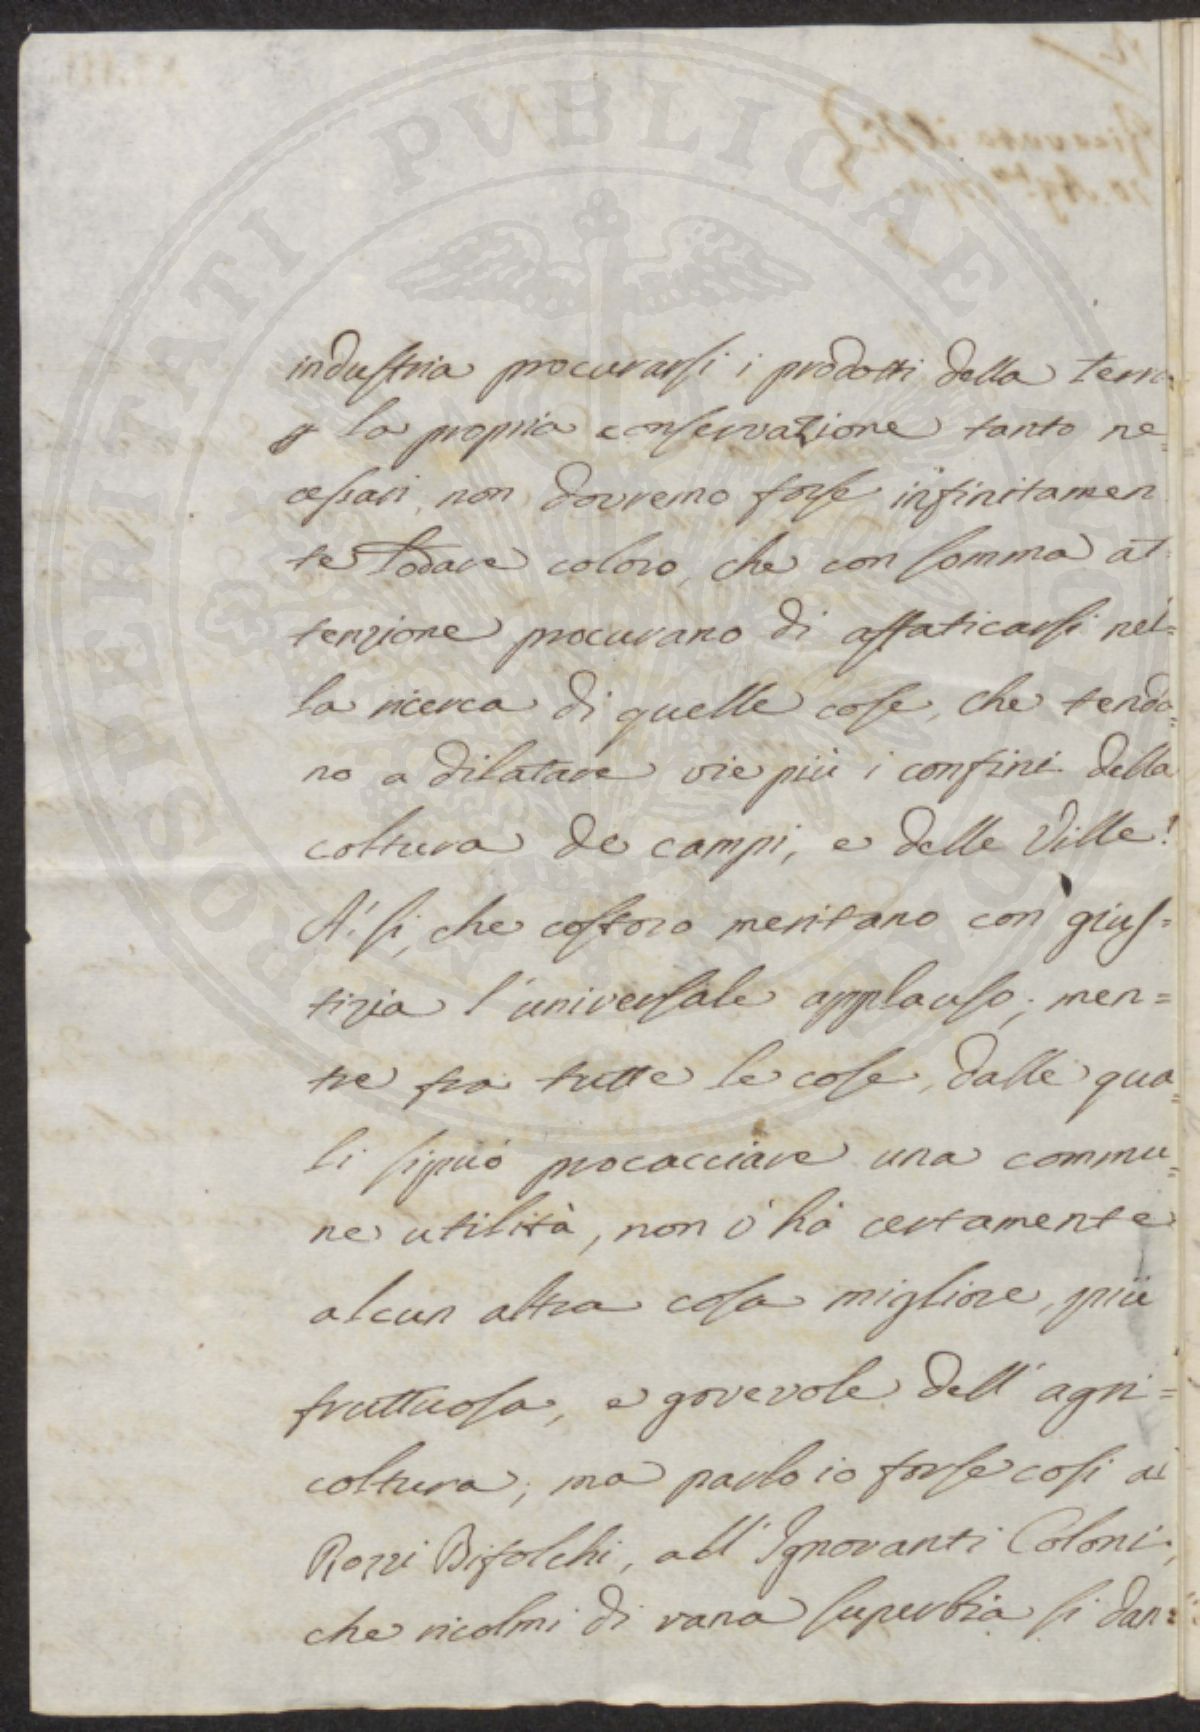 PROSPERITATI PUBLICAE AUGENDAE
industria procurarsi i prodotti della terra
p la propria conservazione tanto ne=
cessari, non dovremo forse infinitamen
te lodare coloro, che con somma at=
tenzione procurano di affaticarsi nel=
la ricerca di quelle cose, che tendo=
no a dilatare vie più i confini della
coltura de campi, e delle Ville!
A! si, che costoro meritano con gius=
tizia l'universale applauso; men=
tre fra tutte le cose, dalle qua=
li sipuó procacciare una commu=
ne utilità, non v'hà certamente
alcun altra cosa migliore, più
fruttuosa, e govevole dell'agri=
coltura; ma parlo io forse cosi ai
Rozzi Bifolchi, all'Ignoranti Coloni,
che ricolmi di vana superbia si dan=